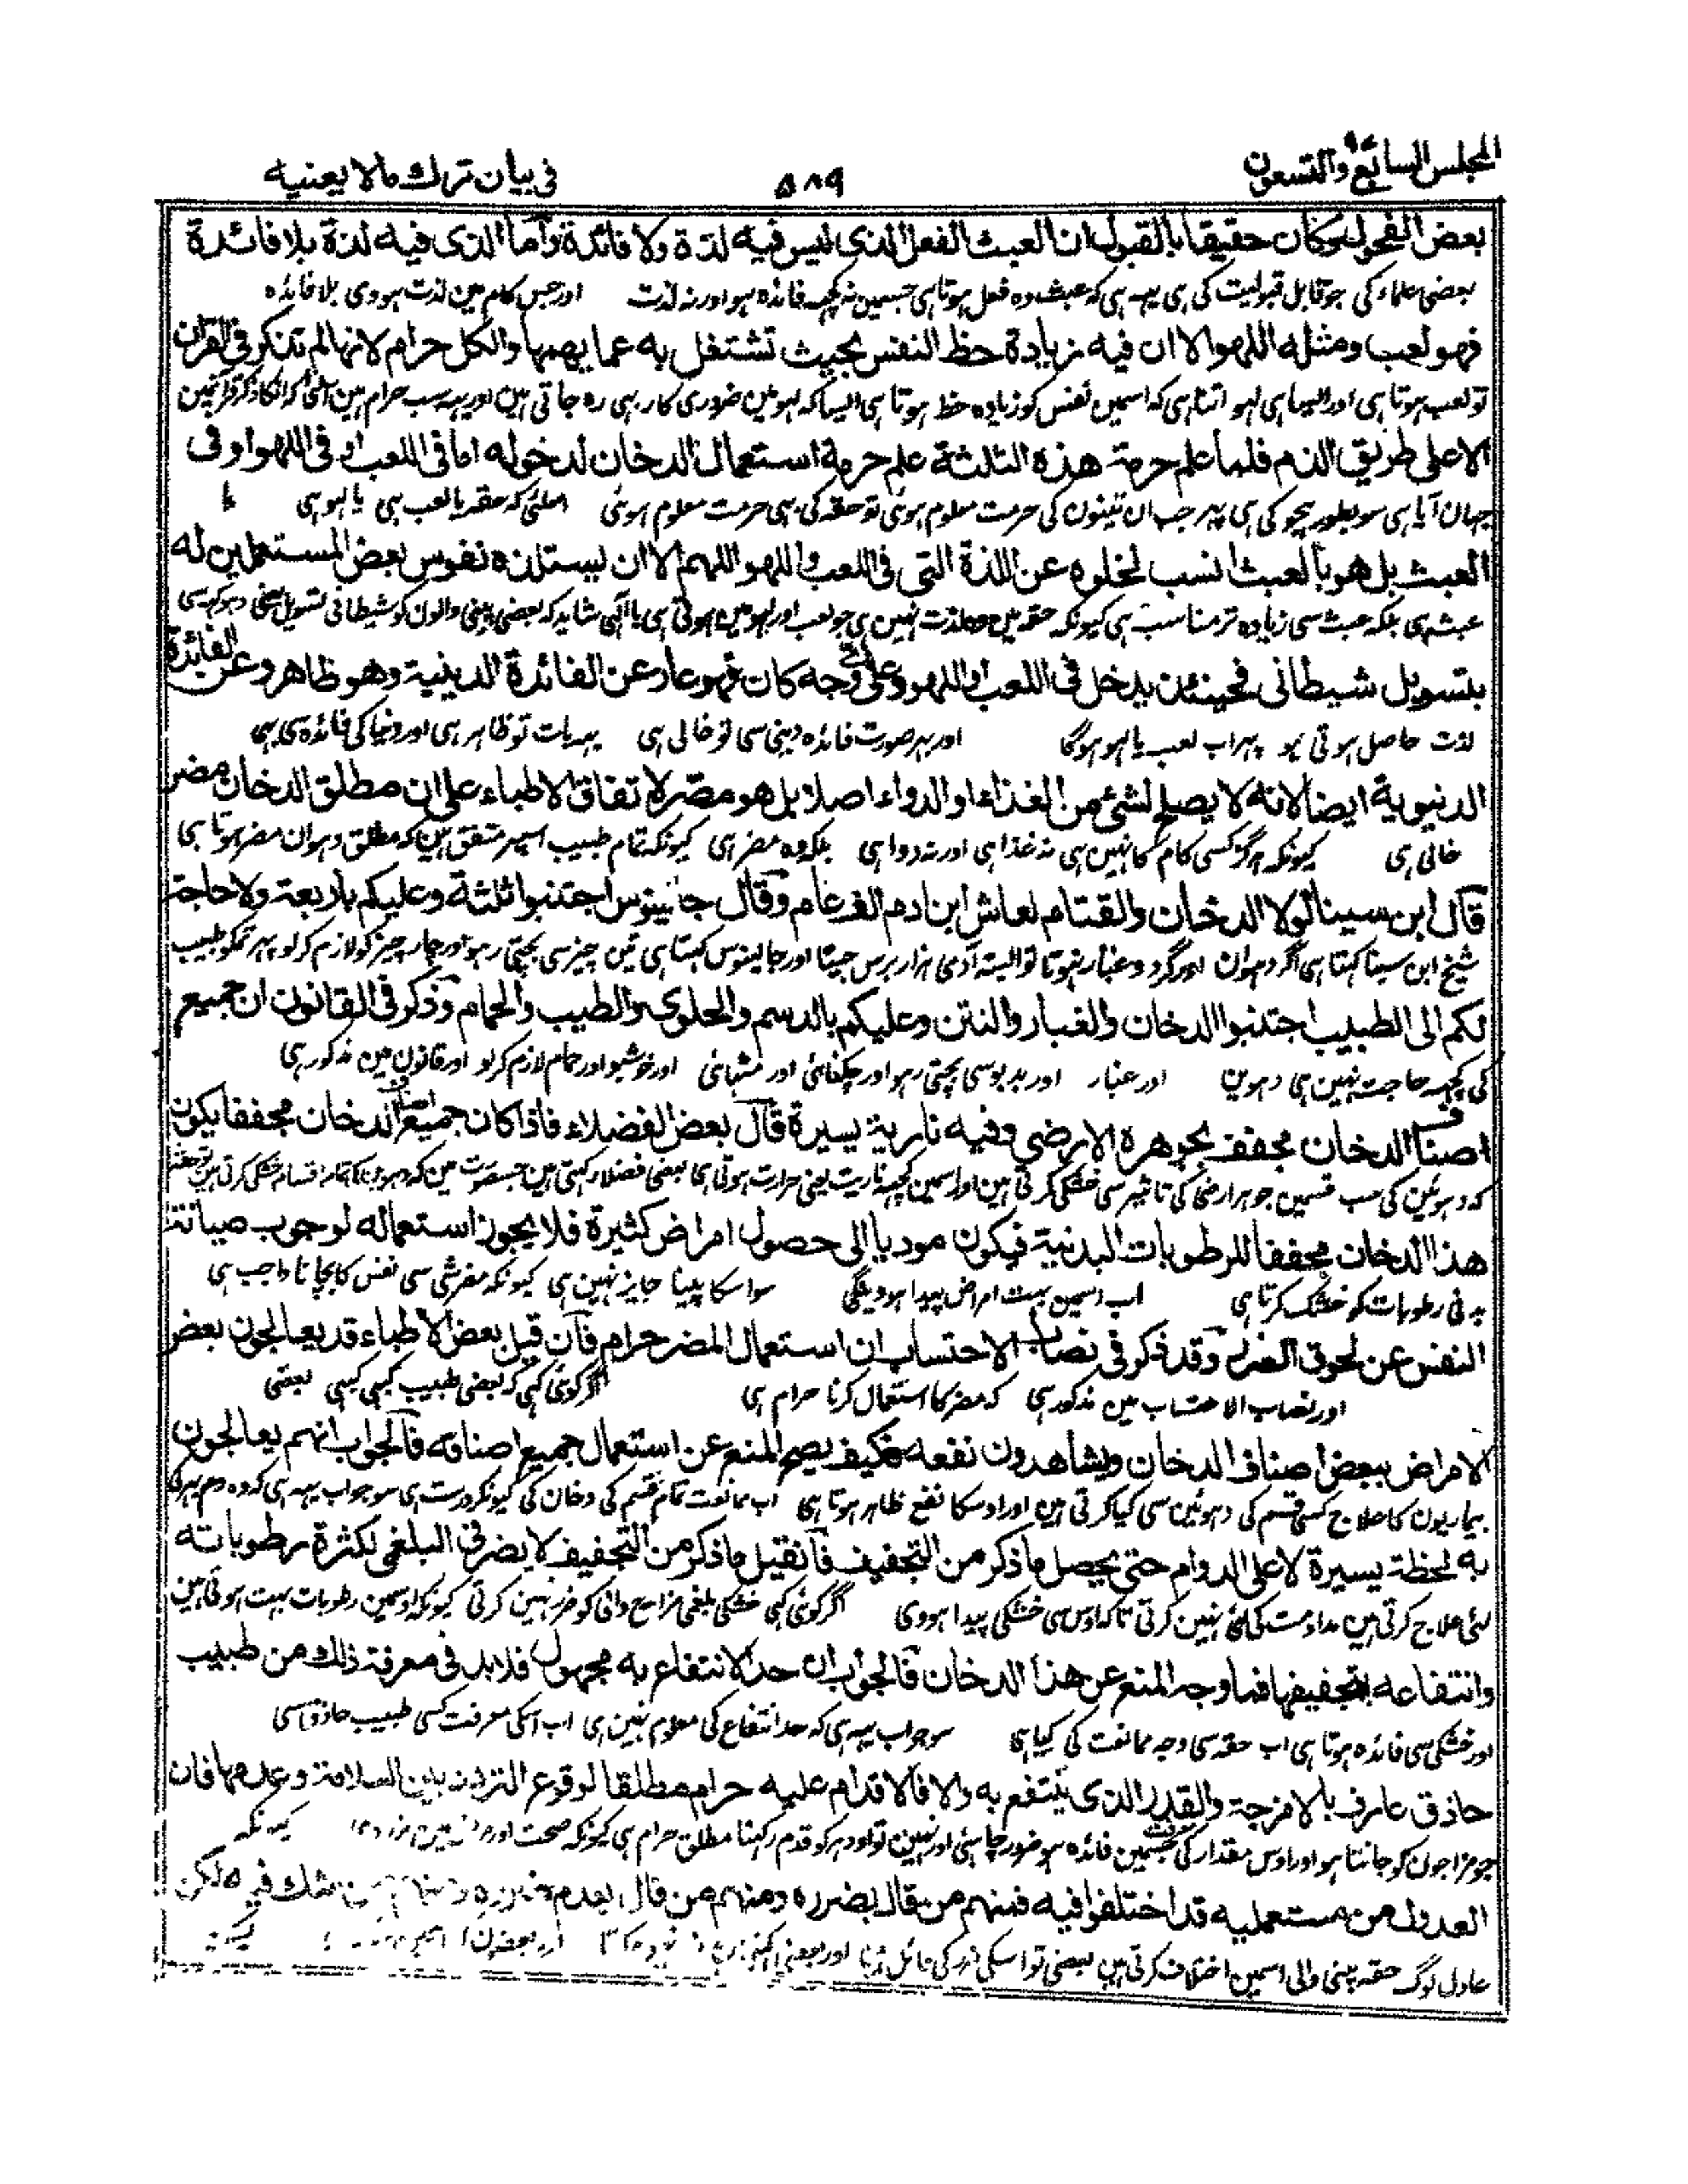 المجلس السابع والتسعون
٥٨٩
فى بيان ترك مالا يعنيه
بعض الفحول وكان حقيقا بالقبول ان العبث الفعل الذى ليس فيه لذة ولا فائدة واما الذى فيه لذة بلا فائدة
بعضى علماء كى جو قابل قبوليت كى ہى يہہ ہى كہ عبث وہ فعل ہوتا ہى جسمين نہ كچہہ فائدہ ہو اور نہ لذت اور جس كام مين لذت ہووى بلا فائدہ
فهو لعب ومثله اللهو الا ان فيه زيادة حظ النفس بحيث تشتغل به عما يهمها والكل حرام لانها لم تذكر فى القرآن
تو لعب ہوتا ہى اور ايسا ہى لہو اتنا ہى كہ اسمين نفس كو زيادہ حظ ہوتا ہى ايسا كہ لہو مين ضرورى كار بہى رہ جاتى ہين اور يہہ سب حرام ہين اسلئى كہ انكا ذكر قرآن مين
الا على طريق الذم فلما علم حرمة هذه الثلثة علم حرمة استعمال الدخان لدخوله اما فى اللعب او فى اللهو او فى
جہان آيا ہى سو بطور ہجو كى ہى پہر جب ان تينون كى حرمت معلوم ہوئى تو حقہ كى بہى حرمت معلوم ہوئى اسلئى كہ حقہ يا لعب ہى يا لہو ہى يا
العبث بل هو بالعبث انسب لخلوه عن اللذة التى فى اللعب واللهو اللهم الا ان يستلذه نفوس بعض المستعملين له
عبث ہى بلكہ عبث سى زيادہ تر مناسب ہى كيونكہ حقہ مين وہ لذت نہين ہى جو لعب اور لہو مين ہوتى ہى يا الہى شايد كہ بعضى پينى والون كو شيطانى تسويل يعنى دہوكہ سى
بتسويل شيطانى فحينئذ يدخل فى اللعب او اللهو وعلى اى وجه كان فهو عار عن الفائدة الدينية وهو ظاهر وعن الفائدة
لذت حاصل ہوتى ہو پہر اب لعب يا لہو ہوگا اور بہر صورت فائدہ دينى سى تو خالى ہى يہہ بات تو ظاہر ہى اور دنيا كى فائدہ سى بہى
الدنيوية ايضا لانه لا يصلح لشئ من الغذاء او الدواء اصلا بل هو مضر لاتفاق الاطباء على ان مطلق الدخان مضر
خالى ہى كيونكہ ہرگز كسى كام كا نہين ہى نہ غذا ہى اور نہ دوا ہى بلكہ وہ مضر ہى كيونكہ تمام طبيب اسپر متفق ہين كہ مطلق دہوان مضر ہوتا ہى
قال ابن سينا لولا الدخان والقتام لعاش ابن ادم الف عام وقال جالينوس اجتنبوا ثلثة وعليكم باربعة ولا حاجة
شيخ ابن سينا كہتا ہى اگر دہوان اور گرد و غبار نہوتا تو البتہ آدمى ہزار برس جيتا اور جالينوس كہتا ہى تين چيز سى بچتى رہو اور چار چيز كو لازم كر لو پہر تمكو طبيب
لكم الى الطبيب اجتنبوا الدخان والغبار والنتن وعليكم بالدسم والحلوى والطيب والحمام وذكر فى القانون ان جميع
كى كچہہ حاجت نہين ہى دہوين اور غبار اور بدبو سى بچتى رہو اور چكنائى اور مٹہائى اور خوشبو اور حمام لازم كر لو اور قانون مين مذكور ہى
اصناف الدخان مجفف بجوهره الارضى وفيه نارية يسيرة قال بعض الفضلاء فاذا كان جميع اصناف الدخان مجففا يكون
كہ دہوئين كى سب قسمين جوہر ارضى كى تاثير سى خشكى كرتى ہين اور اسمين كچہہ ناريت يعنى حرارت ہوتى ہى بعضى فضلا كہتى ہين جس صورت مين كہ دہوين كى تمام اقسام خشكى كرتى ہين تو حقہ
هذا الدخان مجففا للرطوبات البدنية فيكون موديا الى حصول امراض كثيرة فلا يجوز استعماله لوجوب صيانة
بدنى رطوبات كو خشك كرتا ہى اب اسمين بہت امراض پيدا ہووينگى سو اسكا پينا جايز نہين ہى كيونكہ مضر شى سى نفس كا بچانا واجب ہى
النفس عن لحوق الضرر وقد ذكر فى نصاب الاحتساب ان استعمال المضر حرام فان قيل بعض الاطباء قد يعالجون بعض
اور نصاب الاحتساب مين مذكور ہى كہ مضر كا استعمال كرنا حرام ہى اگر كوئى كہى كہ بعضى طبيب كبہى كبہى بعضى
الامراض ببعض اصناف الدخان ويشاهدون نفعه فكيف يصح المنع عن استعمال جميع اصنافه فالجواب انهم يعالجون
بيماريون كا علاج كسى قسم كى دہوئين سى كيا كرتى ہين اور اوسكا نفع ظاہر ہوتا ہى اب ممانعت تمام قسم كى دخان كى كيونكر درست ہى سو جواب يہہ ہى كہ وہ دم بہر كى
به لحظة يسيرة لا على الدوام حتى يحصل ما ذكر من التجفيف فان قيل ما ذكر من التجفيف لا يضر فى البلغمى لكثرة رطوباته
لئى علاج كرتى ہين مداومت كى لئى نہين كرتى تاكہ اوس سى خشكى پيدا ہووى اگر كوئى كہى خشكى بلغمى مزاج والى كو ضرر نہين كرتى كيونكہ اوسمين رطوبات بہت ہوتى ہين
وانتفاعه بتجفيفها فما وجه المنع عن هذا الدخان فالجواب ان حد الانتفاع به مجهول فلا بد فى معرفة ذلك من طبيب
اور خشكى سى فائدہ ہوتا ہى اب حقہ سى وجہ ممانعت كى كيا ہى سو جواب يہہ ہى كہ حد انتفاع كى معلوم نہين ہى اب اسكى معرفت كسى طبيب حاذق سى
حاذق عارف بالامزجة والقدر الذى ينتفع به والا فالاقدام عليه حرام مطلقا لوقوع التردد بين السلامة وعدمها فان
جو مزاجون كو جانتا ہو اور اوس مقدار كى جسمين فائدہ ہو ضرور چاہئى اور نہين تو اودہر كو قدم ركہنا مطلق حرام ہى كيونكہ صحت اور كيونكہ
العدول من مستعمليه قد اختلفوا فيه فمنهم من قال بضرره ومنهم من قال بعدم ضرره ومنهم من شك فيه لكن
عادل لوگ حقہ پينى والى اسمين اختلاف كرتى ہين بعضى تو اسكى ضرر كى قائل اور بعضى ليكن